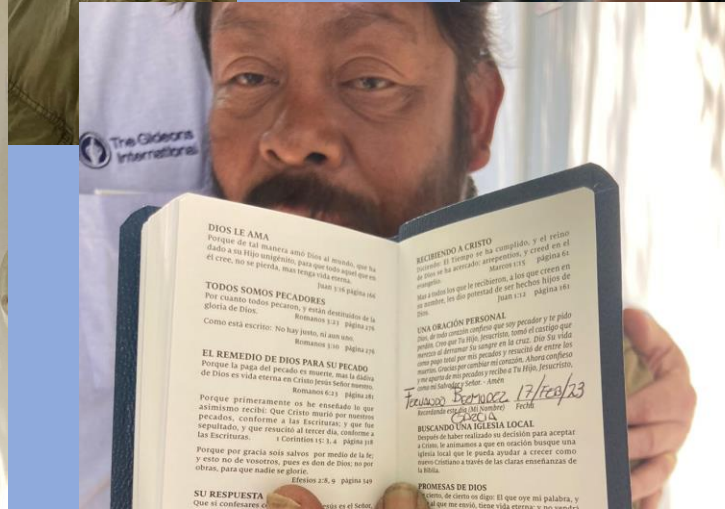 The Gideons
International
DIOS LE AMA
Porque de tal manera amó Dios al mundo, que ha
dado a su Hijo unigénito, para que todo aquel que en
él cree, no se pierda, mas tenga vida eterna.
Juan 3:16 página 166
TODOS SOMOS PECADORES
Por cuanto todos pecaron, y están destituidos de la
gloria de Dios.
Romanos 3:23 página 276
Como está escrito: No hay justo, ni aun uno.
Romanos 3:10 página 276
EL REMEDIO DE DIOS PARA SU PECADO
Porque la paga del pecado es muerte, mas la dádiva
de Dios es vida eterna en Cristo Jesús Señor nuestro.
Romanos 6:23 página 281
Porque primeramente os he enseñado lo que
asimismo recibí: Que Cristo murió por nuestros
pecados, conforme a las Escrituras; y que fue
sepultado, y que resucitó al tercer día, conforme a
las Escrituras.
1 Corintios 15:3, 4 página 318
Porque por gracia sois salvos por medio de la fe;
y esto no de vosotros, pues es don de Dios; no por
obras, para que nadie se gloríe.
Efesios 2:8, 9 página 349
SU RESPUESTA
Que si confesares Jesús es el Señor,
RECIBIENDO A CRISTO
Diciendo: El Tiempo se ha cumplido, y el reino
de Dios se ha acercado; arrepentíos, y creed en el
evangelio.
Marcos 1:15 página 61
Mas a todos los que le recibieron, a los que creen en
su nombre, les dio potestad de ser hechos hijos de
Dios.
Juan 1:12 página 161
UNA ORACIÓN PERSONAL
Dios, de todo corazón confieso que soy pecador y te pido
perdón. Creo que Tu Hijo, Jesucristo, tomó el castigo que
merezco al derramar Su sangre en la cruz. Dio Su vida
como pago total por mis pecados y resucitó de entre los
muertos. Gracias por cambiar mi corazón. Ahora confieso
y me aparto de mis pecados y recibo a Tu Hijo, Jesucristo,
como mi Salvador y Señor. - Amén
FERNANDO BERMUDEZ 17/FEB/23
Recordando este día (Mi Nombre) Fecha
GARCIA
BUSCANDO UNA IGLESIA LOCAL
Después de haber realizado su decisión para aceptar
a Cristo, le animamos a que en oración busque una
iglesia local que le pueda ayudar a crecer como
nuevo Cristiano a través de las claras enseñanzas de
la Biblia.
PROMESAS DE DIOS
De cierto, de cierto os digo: El que oye mi palabra, y
al que me envió, tiene vida eterna; y no vendrá